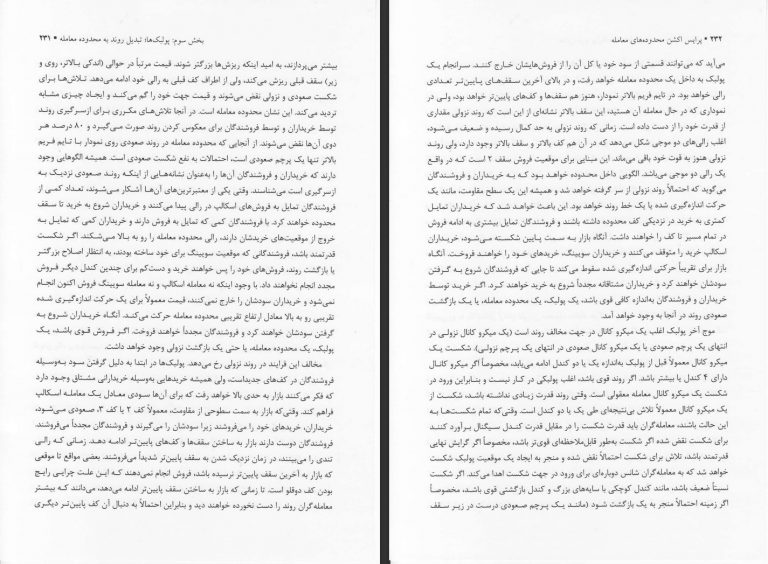 بخش سوم: پولبک‌ها؛ تبدیل روند به محدوده معامله • ۲۳۱
بیشتر می‌پردازند، به امید اینکه ریزش‌ها بزرگتر شوند. قیمت مرتباً در حوالی (اندکی بالاتر، روی و
زیر) سقف قبلی ریزش می‌کند، ولی از اطراف کف قبلی به رالی خود ادامه می‌دهد. تلاش‌ها برای
شکست صعودی و نزولی نقض می‌شوند و قیمت جهت خود را گم می‌کند و ایجاد چیزی مشابه
تردید می‌کند. این نشان محدوده معامله است. در آنجا تلاش‌های مکرری برای ازسرگیری روند
توسط خریداران و توسط فروشندگان برای معکوس کردن روند صورت می‌گیرد و ۸۰ درصد هر
دوی آن‌ها نقض می‌شوند. از آنجایی که محدوده معامله در روند صعودی روی نمودار با تایم فریم
بالاتر تنها یک پرچم صعودی است، احتمالات به نفع شکست صعودی است. همیشه الگوهایی وجود
دارند که خریداران و فروشندگان آن‌ها را به‌عنوان نشانه‌هایی از اینکه روند صعودی نزدیک به
ازسرگیری است می‌شناسند. وقتی یکی از معتبرترین‌های آن‌ها آشکار می‌شوند، تعداد کمی از
فروشندگان تمایل به فروش‌های اسکالپ در رالی پیدا می‌کنند و خریداران شروع به خرید تا سقف
محدوده خواهند کرد. با فروشندگان کمی که تمایل به فروش دارند و خریداران کمی که تمایل به
خروج از موقعیت‌های خریدشان دارند، رالی محدوده معامله را رو به بالا می‌شکند. اگر شکست
قدرتمند باشد، فروشندگانی که موقعیت سویینگ برای خود ساخته بودند، به انتظار اصلاح بزرگتر
یا بازگشت روند، فروش‌های خود را پس خواهند خرید و دست‌کم برای چندین کندل دیگر فروش
مجدد انجام نخواهند داد. با وجود اینکه نه معامله اسکالپ و نه معامله سویینگ فروش اکنون انجام
نمی‌شود و خریداران سودشان را خارج نمی‌کنند، قیمت معمولاً برای یک حرکت اندازه‌گیری شده
تقریبی رو به بالا معادل ارتفاع تقریبی محدوده معامله حرکت می‌کند. آنگاه خریداران شروع به
گرفتن سودشان خواهند کرد و فروشندگان مجدداً خواهند فروخت. اگر فروش قوی باشد، یک
پولبک، یک محدوده معامله، یا حتی یک بازگشت نزولی وجود خواهد داشت.
مخالف این فرایند در روند نزولی رخ می‌دهد. پولبک‌ها در ابتدا به دلیل گرفتن سود به‌وسیله
فروشندگان در کف‌های جدیداست، ولی همیشه خریدهایی به‌وسیله خریدارانی مشتاق وجود دارد
که فکر می‌کنند بازار به حدی بالا خواهد رفت که برای آن‌ها سودی معادل یک معامله اسکالپ
فراهم کند. وقتی‌که بازار به سمت سطوحی از مقاومت، معمولاً کف ۲ یا کف ۳، صعودی می‌شود،
خریداران، خریدهای خود را می‌فروشند زیرا سودشان را می‌گیرند و فروشندگان مجدداً می‌فروشند.
فروشندگان دوست دارند بازار به ساختن سقف‌ها و کف‌های پایین‌تر ادامه دهد. زمانی که رالی
تندی را می‌بینند، در زمان نزدیک شدن به سقف پایین‌تر شدیداً می‌فروشند. بعضی مواقع تا موقعی
که بازار به آخرین سقف پایین‌تر نرسیده باشد، فروش انجام نمی‌دهند که این علت چرایی رایج
بودن کف دوقلو است. تا زمانی که بازار به ساختن سقف پایین‌تر ادامه می‌دهد، می‌دانند که بیشتر
معامله‌گران روند را دست نخورده خواهند دید و بنابراین احتمالاً به دنبال آن کف پایین‌تر دیگری
۲۳۲ • پرایس اکشن محدوده‌های معامله
می‌آید که می‌توانند قسمتی از سود خود یا کل آن را از فروش‌هایشان خارج کنند. سرانجام یک
پولبک به داخل یک محدوده معامله خواهد رفت، و در بالای آخرین سقف‌های پایین‌تر تعدادی
رالی خواهد بود. در تایم فریم بالاتر نمودار، هنوز هم سقف‌ها و کف‌های پایین‌تر خواهد بود، ولی در
نموداری که در حال معامله آن هستید، این سقف بالاتر نشانه‌ای از این است که روند نزولی مقداری
از قدرت خود را از دست داده است. زمانی که روند نزولی به حد کمال رسیده و ضعیف می‌شود،
اغلب رالی‌های دو موجی شکل می‌دهد که در آن هم کف بالاتر و سقف بالاتر وجود دارد، ولی روند
نزولی هنوز به قوت خود باقی می‌ماند. این مبنایی برای موقعیت فروش سقف ۲ است که در واقع
یک رالی دو موجی می‌باشد. الگویی داخل محدوده خواهد بود که به خریداران و فروشندگان
می‌گوید که احتمالاً روند نزولی از سر گرفته خواهد شد و همیشه این یک سطح مقاومت، مانند یک
حرکت اندازه‌گیری شده یا یک خط روند خواهد بود. این باعث خواهد شد که خریداران تمایل
کمتری به خرید در نزدیکی کف محدوده داشته باشند و فروشندگان تمایل بیشتری به ادامه فروش
در تمام مسیر تا کف را خواهند داشت. آنگاه بازار به سمت پایین شکسته می‌شود، خریداران
اسکالپ خرید را متوقف می‌کنند و خریداران سویینگ، خریدهای خود را خواهند فروخت. آنگاه
بازار برای تقریباً حرکتی اندازه‌گیری شده سقوط می‌کند تا جایی که فروشندگان شروع به گرفتن
سودشان خواهند کرد و خریداران مشتاقانه مجدداً شروع به خرید خواهند کرد. اگر خرید توسط
خریداران و فروشندگان به‌اندازه کافی قوی باشد، یک پولبک، یک محدوده معامله، یا یک بازگشت
صعودی روند در آنجا به وجود خواهد آمد.
موج آخر پولبک اغلب یک میکرو کانال در جهت مخالف روند است (یک میکرو کانال نزولی در
انتهای یک پرچم صعودی یا یک میکرو کانال صعودی در انتهای یک پرچم نزولی). شکست یک
میکرو کانال معمولاً قبل از پولبک به‌اندازه یک یا دو کندل ادامه می‌یابد، مخصوصاً اگر میکرو کانال
دارای ۴ کندل یا بیشتر باشد. اگر روند قوی باشد، اغلب پولبکی در کار نیست و بنابراین ورود در
شکست یک میکرو کانال معامله معقولی است. وقتی روند قدرت زیادی نداشته باشد، شکست از
یک میکرو کانال معمولاً تلاش بی‌نتیجه‌ای طی یک یا دو کندل است. وقتی‌که تمام شکست‌ها به
این حالت باشند، معامله‌گران باید قدرت شکست را در مقابل قدرت کندل سیگنال برآورد کنند
برای شکست نقض شده اگر شکست به‌طور قابل‌ملاحظه‌ای قوی‌تر باشد، مخصوصاً اگر گرایش نهایی
قدرتمند باشد، تلاش برای شکست احتمالاً نقض شده و منجر به ایجاد یک موقعیت پولبک شکست
خواهد شد که به معامله‌گران شانس دوباره‌ای برای ورود در جهت شکست اهدا می‌کند. اگر شکست
نسبتاً ضعیف باشد، مانند کندل کوچکی با سایه‌های بزرگ و کندل بازگشتی قوی باشد، مخصوصاً
اگر زمینه احتمالاً منجر به یک بازگشت شود (مانند یک پرچم صعودی درست در زیر سقف